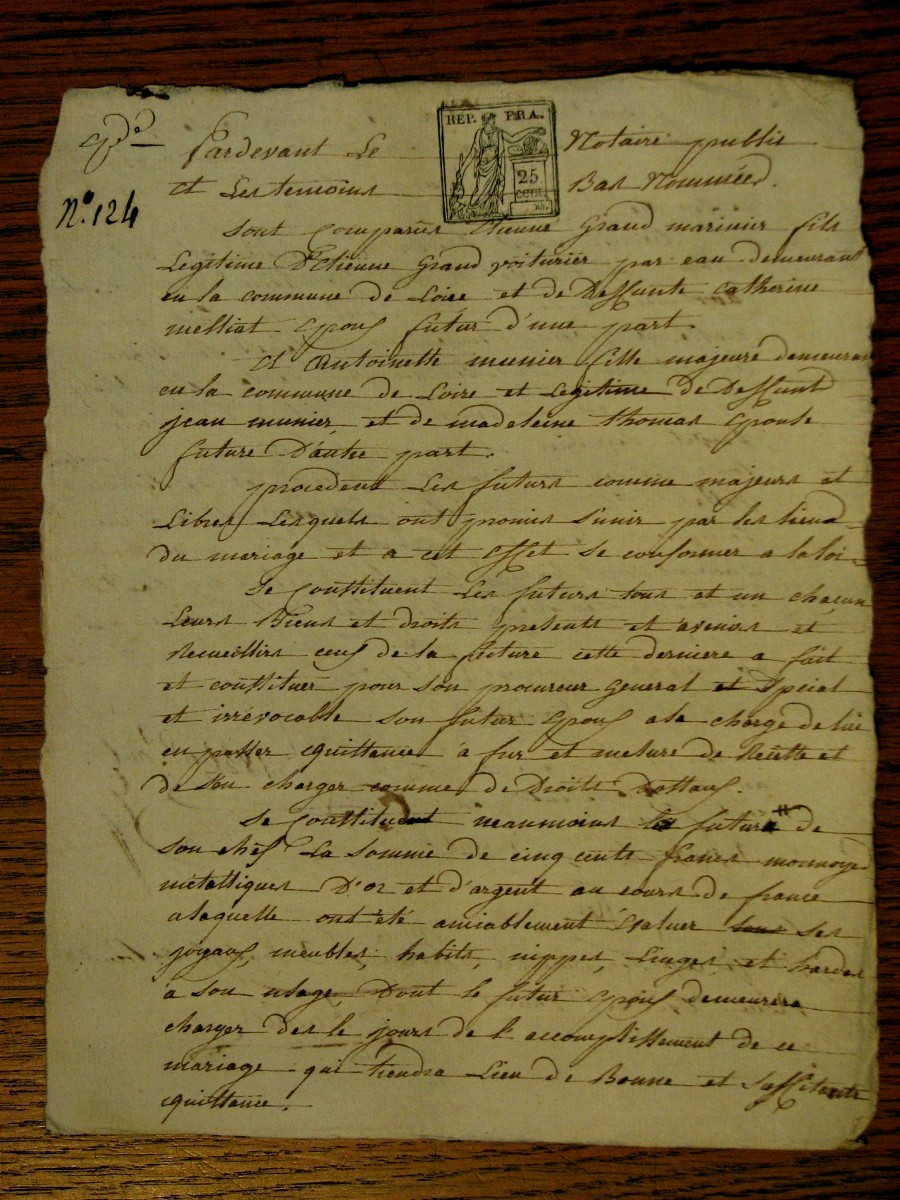 Gde
REP. FRA.
25
CENT.
N.° 124
Pardevant Le Notaire public
et Les temoins Bas Nommées.
Sont Comparus Etienne Grand marinier fils
Legitime D'Etienne Grand voiturier par eau demeurant
en la commune de Loire et de Deffunte Catherine
melliat Epoux futur d'une part.
Et Antoinette munier fille majeure demeurant
en la commune de Loire et Legitime de Deffunt
jean munier, et de madeleine thomas Epouse
future D'autre part.
procedent Les futurs comme majeurs et
Libres Lesquels ont promis S'unir par les liens
du mariage et a cet Effet se conformer a la loi -
Se Constituent Les futurs tous et un chacun
Leurs Biens et droits presents et avenirs et
Recueillirs ceux de la future cette derniere a fait
et constituer pour son procureur general et Special
et irrévocable Son futur Epoux a la charge de lui
en passer quittance à fur et mesure de Recette et
de s'en charger comme de Droits Dottaux.
Se Constituent neaumoins la future # de
Son chef La Somme de cinq cents francs monnoyed
métalliques D'or et d'argent au cours de france
a laquelle ont été amiablement Evaluer tous ses
joyaux, meubles, habits, nippes, Linges et hardes
a Son usage, Dont le futur Epoux demeurera
charger des le jours de l'accomplissement de ce
mariage qui tiendra Lieu de Bonne et Suffisante
quittance.